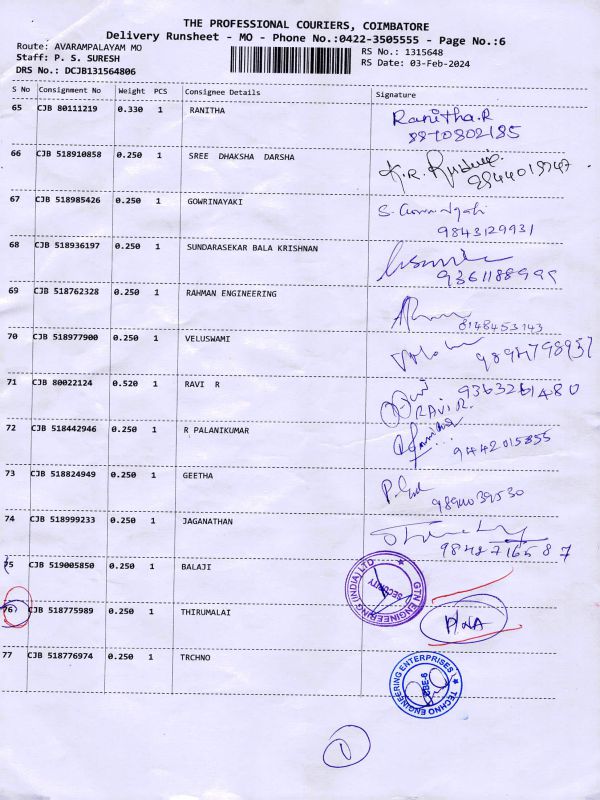 THE PROFESSIONAL COURIERS, COIMBATORE
Delivery Runsheet - MO - Phone No.:0422-3505555 - Page No.:6
Route: AVARAMPALAYAM MO
RS No.: 1315648
Staff: P. S. SURESH
RS Date: 03-Feb-2024
DRS No.: DCJB131564806
S No Consignment No Weight PCS Consignee Details Signature
65 CJB 80111219 0.330 1 RANITHA Ranitha.R
8870802185
66 CJB 518910858 0.250 1 SREE DHAKSHA DARSHA K.R.
67 CJB 518985426 0.250 1 GOWRINAYAKI S.
9843129931
68 CJB 518936197 0.250 1 SUNDARASEKAR BALA KRISHNAN
69 CJB 518762328 0.250 1 RAHMAN ENGINEERING
70 CJB 518977900 0.250 1 VELUSWAMI
71 CJB 80022124 0.520 1 RAVI R
RAVI.R.
72 CJB 518442946 0.250 1 R PALANIKUMAR
9442015855
73 CJB 518824949 0.250 1 GEETHA
74 CJB 518999233 0.250 1 JAGANATHAN
9842716587
75 CJB 519005850 0.250 1 BALAJI GTN ENGINEERING (INDIA) LTD
SECURITY
76 CJB 518775989 0.250 1 THIRUMALAI P/NA
77 CJB 518776974 0.250 1 TRCHNO TECHNO ENGINEERING ENTERPRISES
CBE-6
1